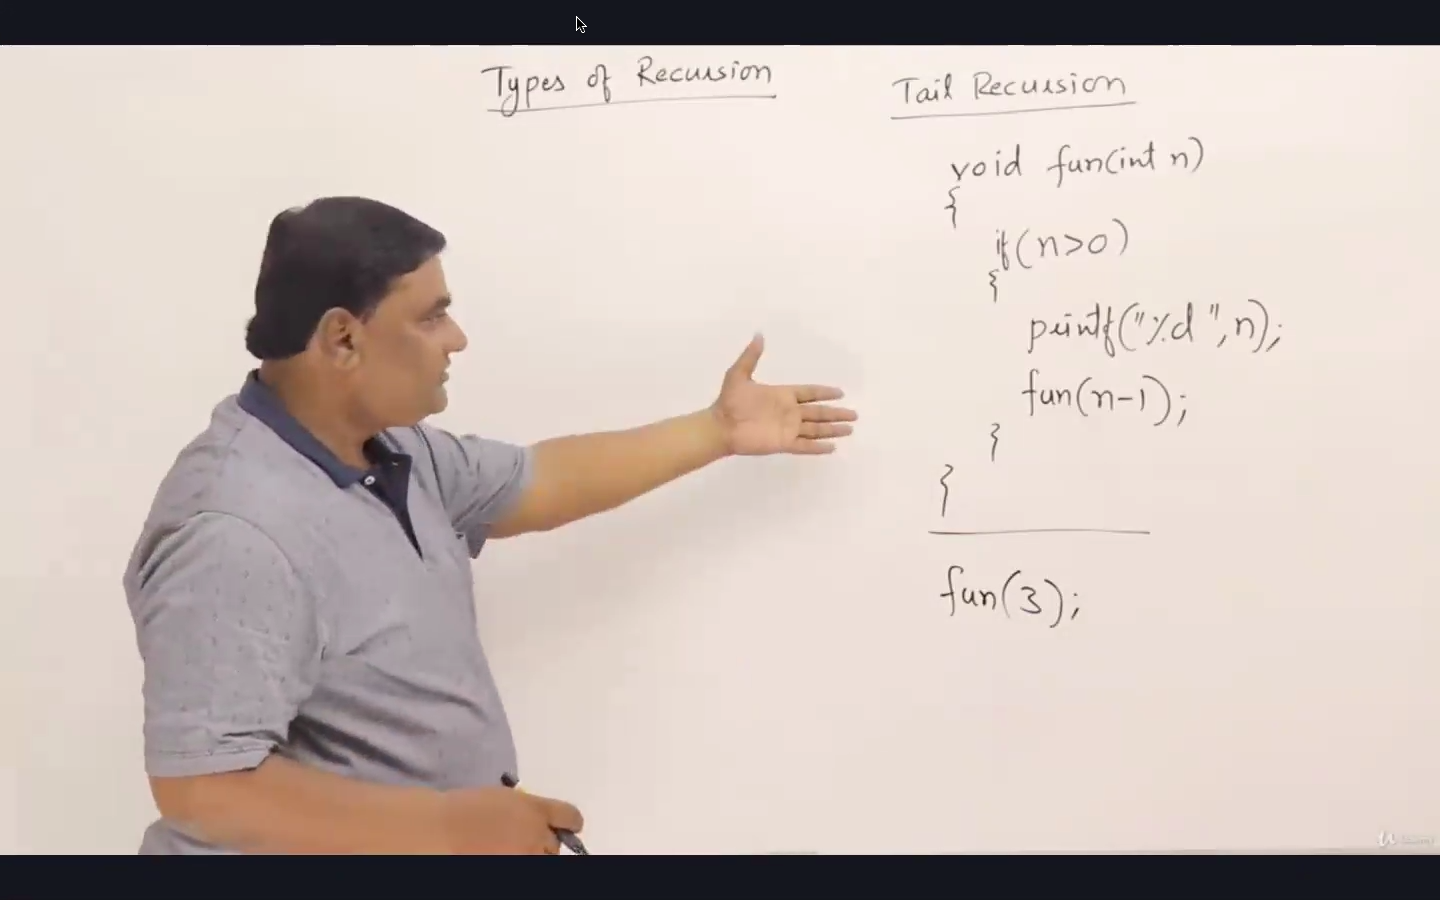 Types of Recursion
Tail Recursion
void fun(int n)
{
if(n>0)
{
printf("%d ",n);
fun(n-1);
}
}
fun(3);